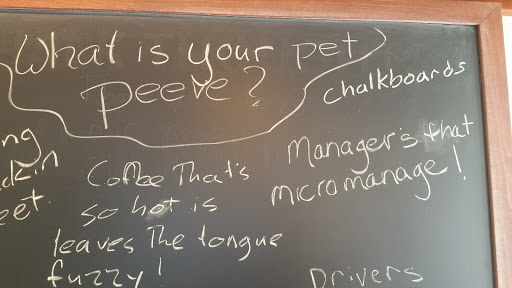 What is your pet
peeve?
chalkboards
Manager's that
micromanage!
Coffee That's
so hot is
leaves The tongue
fuzzy!
Drivers
ng
eet.